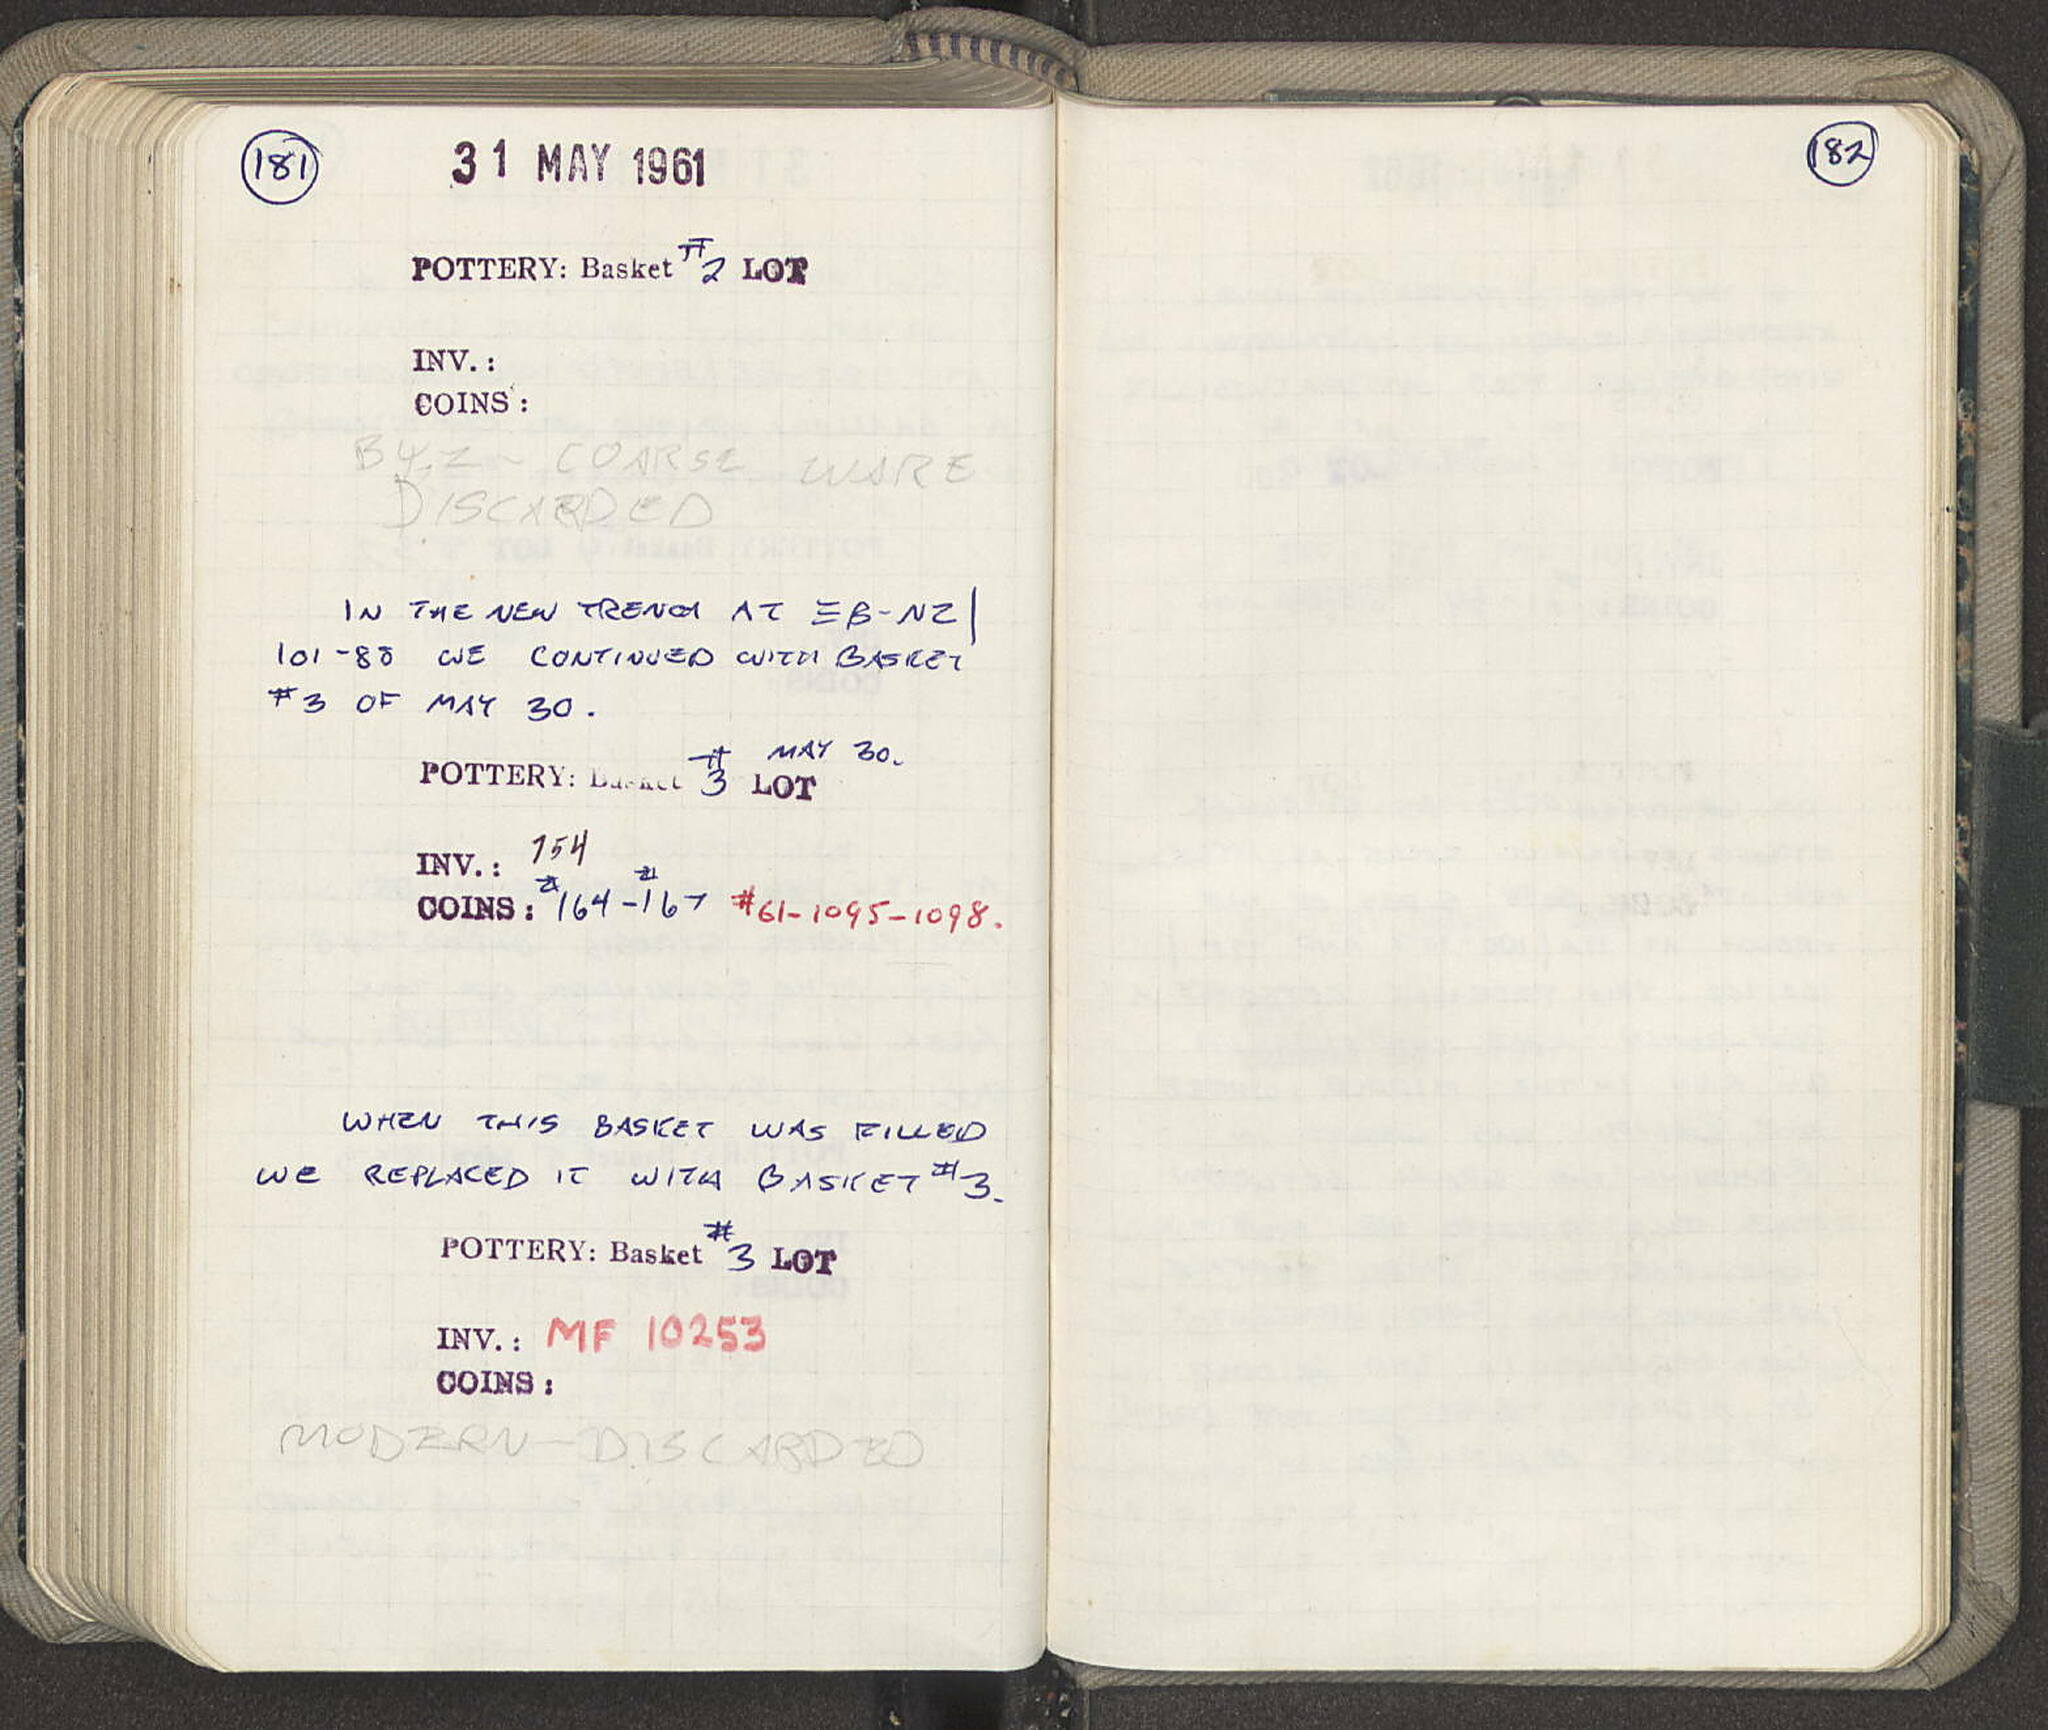 181
31 MAY 1961
POTTERY: Basket #2 LOT
INV.:
COINS:
BYZ - COARSE WARE
DISCARDED
IN THE NEW TRENCH AT ΞB-NZ|
101-88 WE CONTINUED WITH BASKET
#3 OF MAY 30.
MAY 30.
POTTERY: Basket #3 LOT
INV.: 754
COINS: #164-#167 #61-1095-1098.
WHEN THIS BASKET WAS FILLED
WE REPLACED IT WITH BASKET #3.
POTTERY: Basket #3 LOT
INV.: MF 10253
COINS:
MODERN - DISCARDED
182